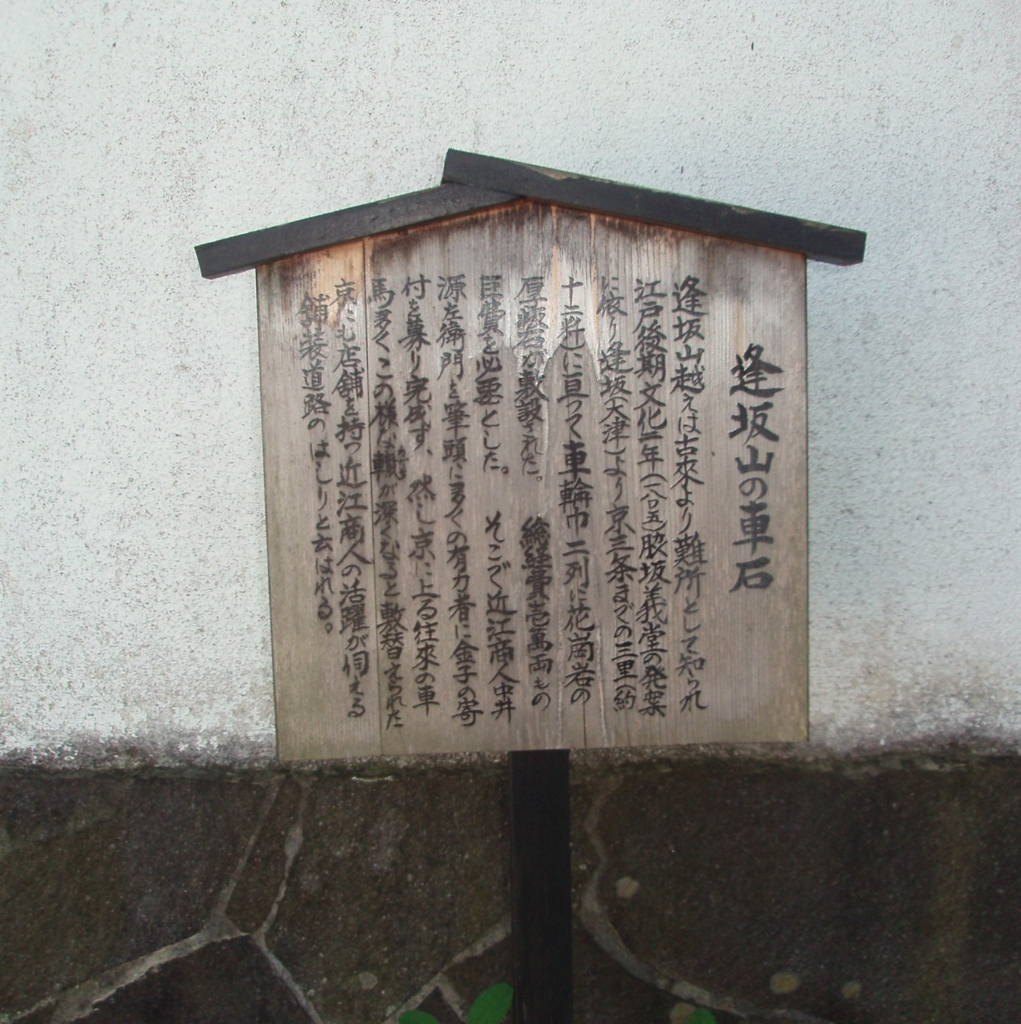 逢坂山の車石
逢坂山越えは古來より難所として知られ
江戸後期文化二年(一八〇五)脇坂義堂の発案
に依り逢坂(大津)より京三条までの三里(約
十二粁)に亘って車輪巾二列に花崗岩の
厚板石が敷設された。 総経費壱萬両もの
巨費を必要とした。 そこで近江商人中井
源左衛門を筆頭に多くの有力者に金子の寄
付を募り完成す、然し京に上る往來の車
馬多くこの様な轍が深くなると敷替えられた
京にも店舗を持つ近江商人の活躍が伺える
舗装道路のはしりと云はれる。